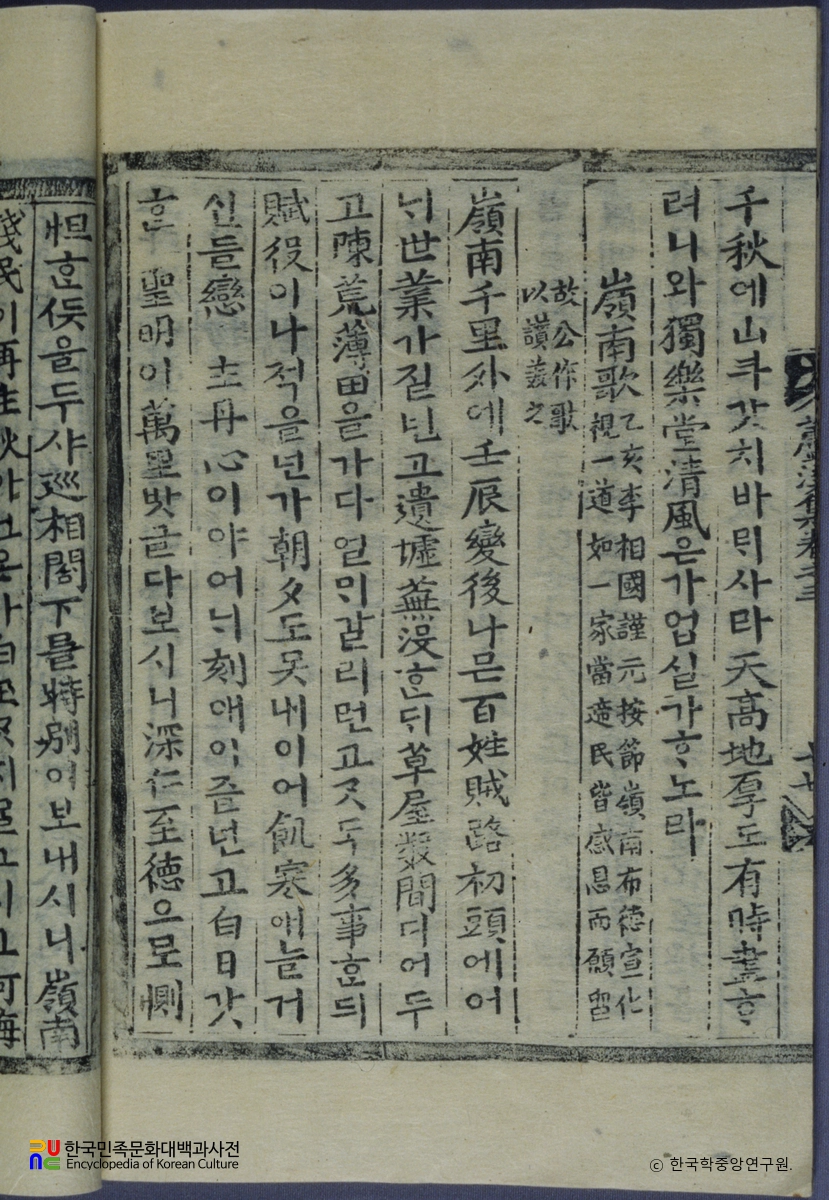 千秋에山두갓치바ᄅᆡ사라天高地厚도有時盡ᄒᆞ
려니와獨樂堂淸風은가업실가ᄒᆞ노라
嶺南歌
乙亥李相國謹元按節嶺南布德宣化
視一道如一家當適民皆感恩而願留
故公作歌
以讃羙之
嶺南千里外에壬辰變後나믄百姓賊路初頭에어
ᄂᆡ世業가질넌고遺墟蕪没ᄒᆞᆫᄃᆡ草屋數間디어두
고陳荒薄田을가다얼ᄆᆡ갈리먼고ᄀᆞᆺ득多事ᄒᆞᆫᄃᆡ
賦役이나적을넌가朝夕도못내이어飢寒애늘거
신들戀 主丹心이야어ᄂᆡ刻애이즐넌고白日갓
ᄒᆞᆫ 聖明이萬里밧글다보시니深仁至德으로惻
怛ᄒᆞᆫ 을두샤巡相閤下를特別이보내시니嶺南
蘆溪集卷之三
十七
한국민족문화대백과사전
Encyclopedia of Korean Culture
© 한국학중앙연구원.